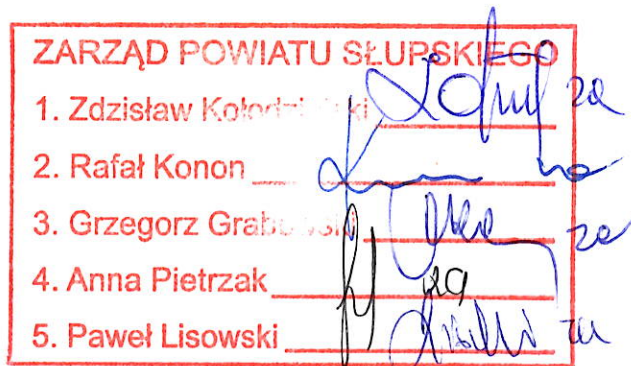 ZARZĄD POWIATU SŁUPSKIEGO
1. Zdzisław Kołodziejski za
2. Rafał Konon za
3. Grzegorz Grabowski za
4. Anna Pietrzak za
5. Paweł Lisowski za